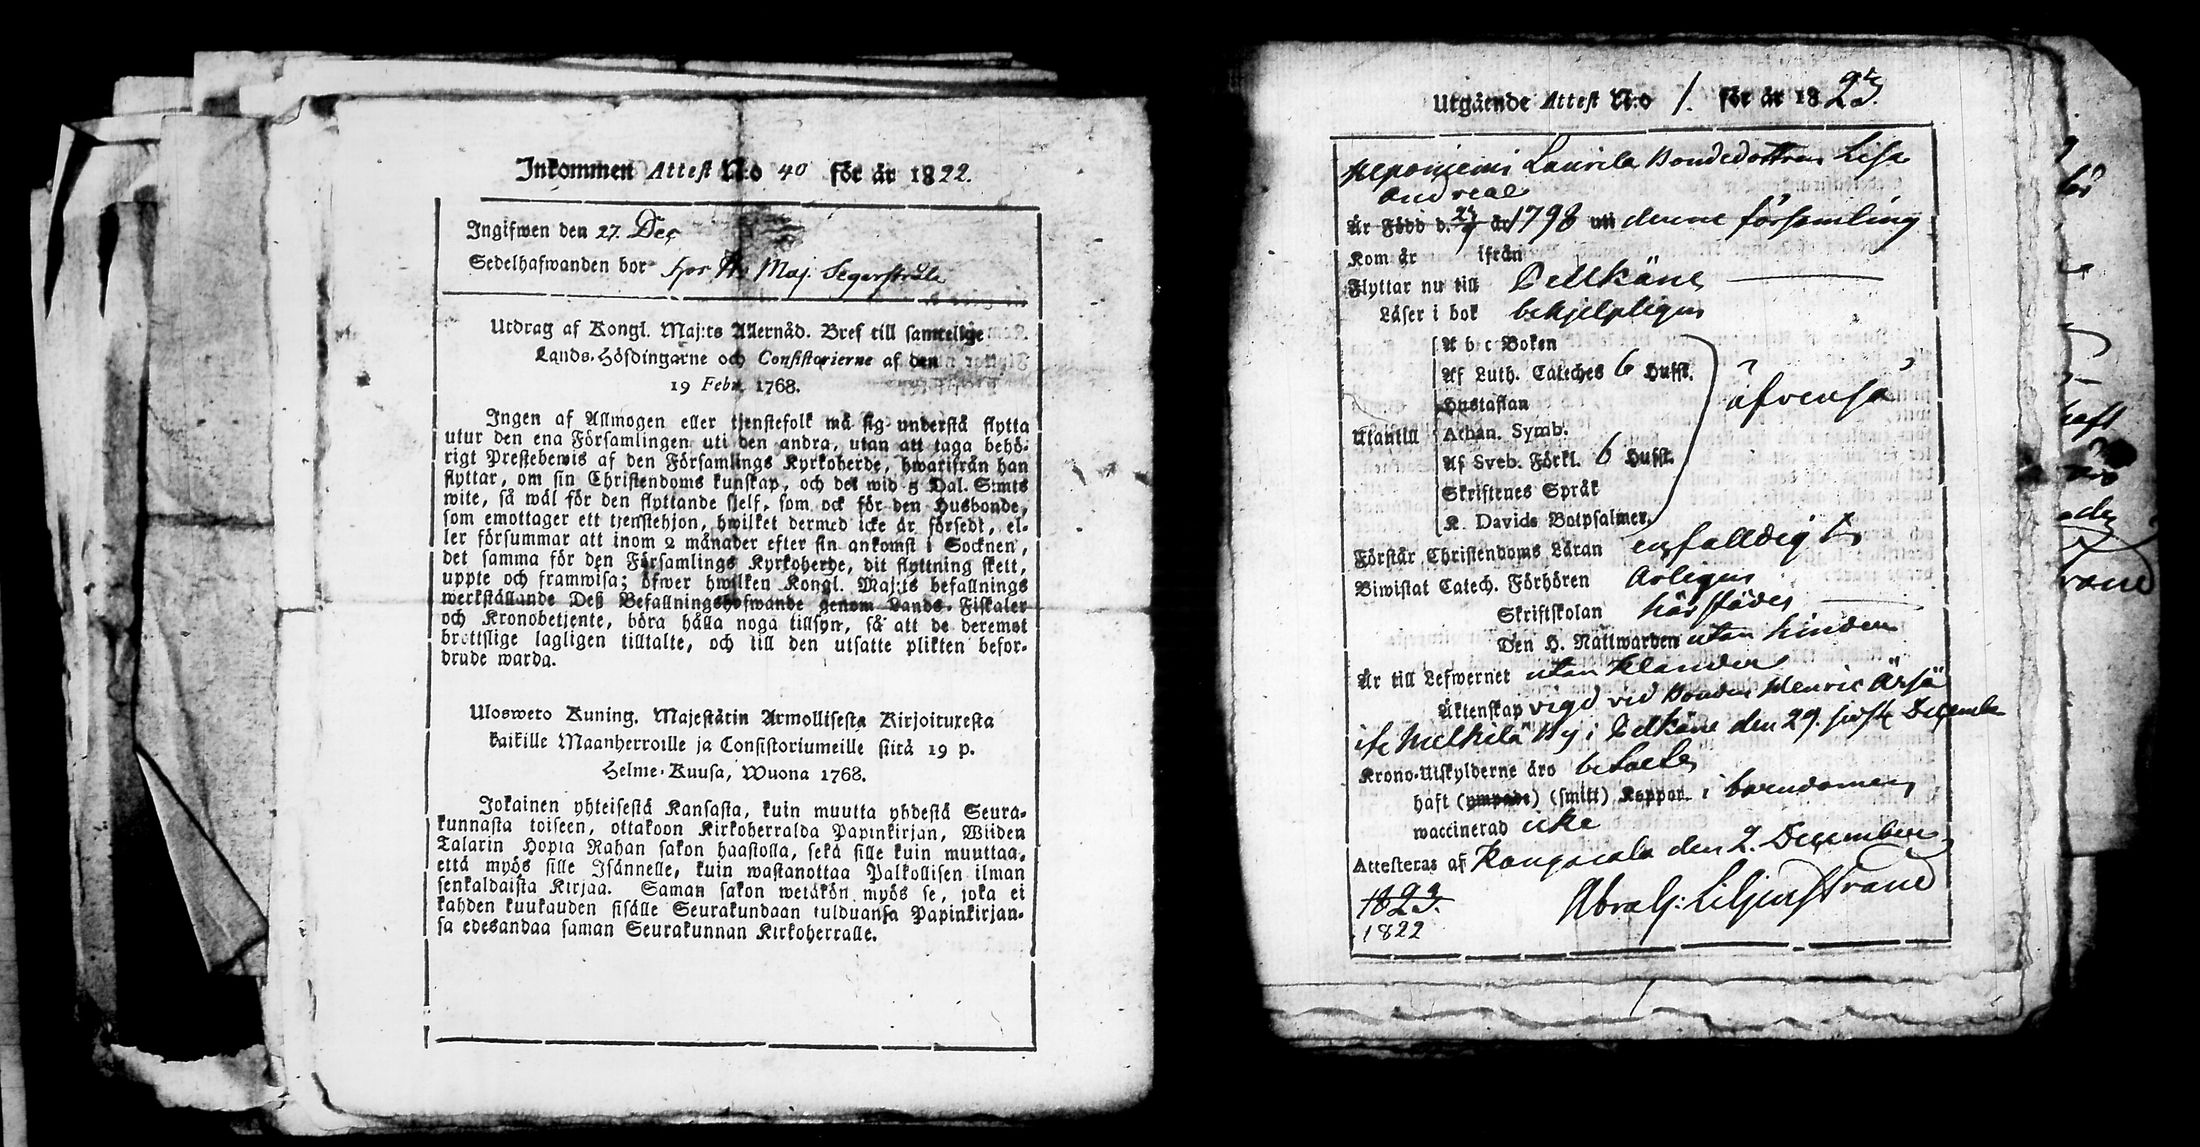 Inkommen Attest N:o 40 för år 1822.
Ingifwen den 27 Dec
Sedelhafwanden bor hos Hr Maj. Segerstråle
Utdrag af Kongl. Maj:ts Allernåd. Bref till samtelige
Lands-Höfdingarne och Consistorierne af den
19 Febr. 1768.
Ingen af Allmogen eller tjenstefolk må sig understå flytta
utur den ena Församlingen uti den andra, utan att taga behö-
rigt Prestebewis af den Församlings Kyrkoherde, hwarifrån han
flyttar, om sin Christendoms kunskap, och det wid 5 Dal. S:mts
wite, så wäl för den flyttande sjelf, som ock för den Husbonde,
som emottager ett tjenstehjon, hwilket dermed icke är försedt, el-
ler försummar att inom 2 månader efter sin ankomst i Socknen,
det samma för den Församlings Kyrkoherde, dit flyttning skett,
uppte och framwisa; öfwer hwilken Kongl. Maj:ts befallnings
werkställande Deß Befallningshafwande genom Lands-Fiskaler
och Kronobetjente, böra hålla noga tillsyn, så att de deremot
brottslige lagligen tilltalte, och till den utsatte plikten befor-
drade warda.
Ulosweto Kuning. Majestätin Armollisesta Kirjoituxesta
kaikille Maanherroille ja Consistoriumeille siitä 19 p.
Helme-Kuusa, Wuona 1768.
Jokainen yhteisestä Kansasta, kuin muutta yhdestä Seura-
kunnasta toiseen, ottakoon Kirkoherralda Papinkirjan, Wiiden
Talarin Hopia Rahan sakon haastolla, sekä sille kuin muuttaa,
että myös sille Isännelle, kuin wastanottaa Palkollisen ilman
senkaldaista Kirjaa. Saman sakon wetäkön myös se, joka ei
kahden kuukauden sisälle Seurakundaan tulduansa Papinkirjan-
sa edesandaa saman Seurakunnan Kirkoherralle.
Utgående Attest N:o 1. för år 1823.
Neponiemi Laurila Bondedottren Lisa
Andreae
Är Född d. 27/7 år 1798 uti denne församling
Kom år ifrån
Flyttar nu till Pelkäne
Läser i bok behjelpligen
Utantill
A b c Boken
Af Luth. Cateches 6 Hufst.
Hustaflan
Athan. Symb.
Af Sveb. Förkl. 6 Hufst.
Skriftenes Språk
K. Davids Botpsalmer
äfvenså
Förstår Christendoms Läran enfalldigt
Biwistat Catech. Förhören årligen
Skriftskolan härstädes
Den H. Nattwarden utan hinder
Är till Lefwernet utan klander
Äktenskap vigd vid Bonden Henric Ärjä
ifr Melkilä By i Pelkäne den 29. sistl December
Krono-Utskylderne äro betalte
haft (ympade) (smitt) Koppor i barndomen
waccinerad icke
Attesteras af Kangasala den 2. December
1823.
1822
Abrah: Liljenstrand